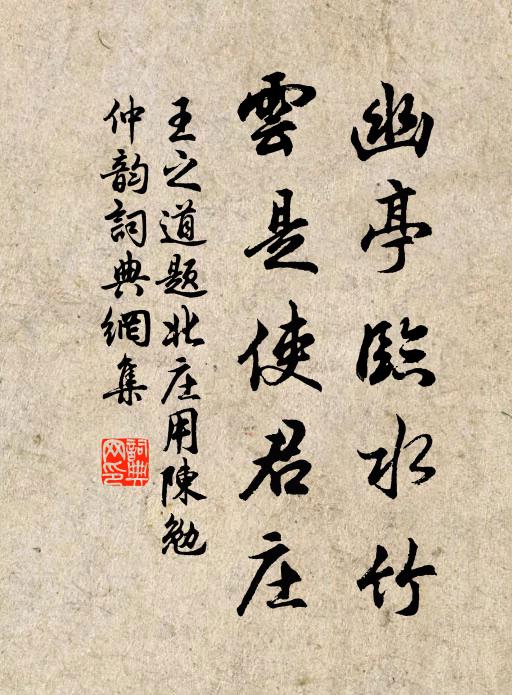 幽亭臨水竹
雲是使君庄
王之道題北庄用陳勉
仲韵詞典網集
詞典
网印